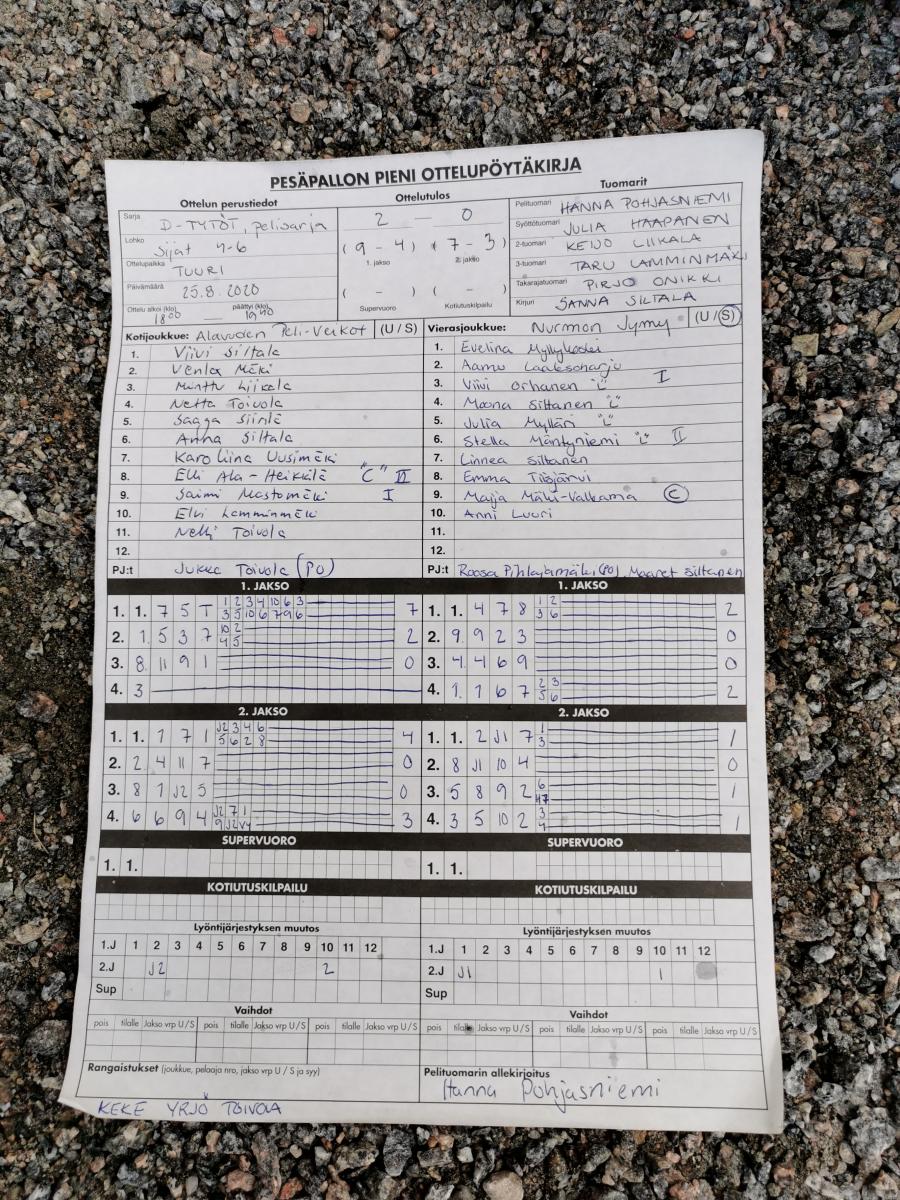 PESÄPALLON PIENI OTTELUPÖYTÄKIRJA
Ottelun perustiedot
Sarja D-TYTÖT, pelisarja
Lohko Sijat 4-6
Ottelupaikka TUURI
Päivämäärä 25.8.2020
Ottelu alkoi (klo) 18 00 — päättyi (klo) 19 40
Ottelutulos
2 — 0
(9 - 4) (7 - 3)
1. jakso 2. jakso
( - ) ( - )
Supervuoro Kotiutuskilpailu
Tuomarit
Pelituomari HANNA POHJASNIEMI
Syöttötuomari JULIA HAAPANEN
2-tuomari KEIJO LIIKALA
3-tuomari TARU LAMMINMÄKI
Takarajatuomari PIRJO ONIKKI
Kirjuri SANNA SILTALA
Kotijoukkue: Alavuden Peli-Veikot (U / S)
1. Viivi Siltala
2. Venla Mäki
3. Minttu Liikala
4. Netta Toivola
5. Saaga Siirilä
6. Anna Siltala
7. Karoliina Uusimäki
8. Elli Ala-Heikkilä "C" II
9. Saimi Mastomäki I
10. Elvi Lamminmäki
11. Nelli Toivola
12.
PJ:t Jukka Toivola (PO)
Vierasjoukkue: Nurmon Jymy (U / S)
1. Evelina Myllykoski
2. Aamu Laaksoharju
3. Viivi Orhanen "L" I
4. Moona Siltanen "L"
5. Julia Mylläri "L"
6. Stella Mäntyniemi "L" II
7. Linnea Siltanen
8. Emma Tiisjärvi
9. Maija Mäki-Valkama C
10. Anni Luuri
11.
12.
PJ:t Roosa Pihlajamäki (PO), Maaret Siltanen
1. JAKSO
1. 1. 7 5 T 1 2 3 4 10 6 3 7
3 5 10 6 7 9 6
2. 1. 5 3 7 10 2 2
4 5
3. 8. 11 9 1 0
4. 3
1. JAKSO
1. 1. 4 7 8 1 2 2
3 6
2. 9. 9 2 3 0
3. 4. 4 6 9 0
4. 1. 1 6 7 2 3 2
5 6
2. JAKSO
1. 1. 1 7 1 J2 3 4 6 4
5 6 2 8
2. 2 4 11 7 0
3. 8 1 J2 5 0
4. 6 6 9 4 J2 7 1 3
9 J2
2. JAKSO
1. 1. 2 J1 7 1 1
3
2. 8 J1 10 4 0
3. 5 8 9 2 6 1
4. 3 5 10 2 3 1
4
SUPERVUORO
1. 1.
SUPERVUORO
1. 1.
KOTIUTUSKILPAILU
KOTIUTUSKILPAILU
Lyöntijärjestyksen muutos
1.J 1 2 3 4 5 6 7 8 9 10 11 12
2.J J2 2
Sup
Lyöntijärjestyksen muutos
1.J 1 2 3 4 5 6 7 8 9 10 11 12
2.J J1 1
Sup
Vaihdot
pois tilalle Jakso vrp U / S pois tilalle Jakso vrp U / S pois tilalle Jakso vrp U / S
Vaihdot
pois tilalle Jakso vrp U / S pois tilalle Jakso vrp U / S pois tilalle Jakso vrp U / S
Rangaistukset (joukkue, pelaaja nro, jakso vrp U / S ja syy)
KEKE YRJÖ TOIVOLA
Pelituomarin allekirjoitus
Hanna Pohjasniemi